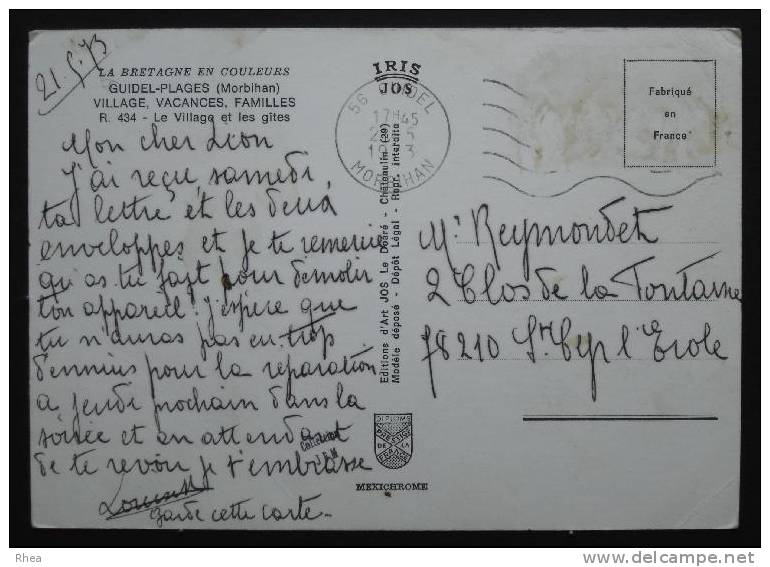 21.5.73
LA BRETAGNE EN COULEURS
GUIDEL-PLAGES (Morbihan)
VILLAGE, VACANCES, FAMILLES
R. 434 - Le Village et les gîtes
Mon cher Léon
J'ai reçu, samedi,
ta lettre et les deux
enveloppes et je te remercie
qu'as tu fait pour démolir
ton appareil : j'espère que
tu n'auras pas eu trop
d'ennuis pour la réparation
à jeudi prochain dans la
soirée et en attendant
de te revoir je t'embrasse
garde cette carte -
IRIS
JOS
56 GUIDEL
17H45
MORBIHAN
Editions d'Art JOS Le Doaré - Châteaulin (29)
Modèle déposé - Dépôt Légal - Repr. interdite
DIPLOME
PRESTIGE
DE LA
FRANCE
MEXICHROME
Fabriqué
en
France
Mr Reymondet
2 Clos de la Fontaine
78210 St Cyr l'Ecole
Rhea
www.delcampe.net